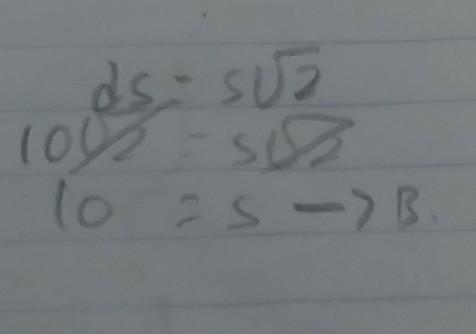 ds = s√2
10√2 = s√2
10 = s -> B.